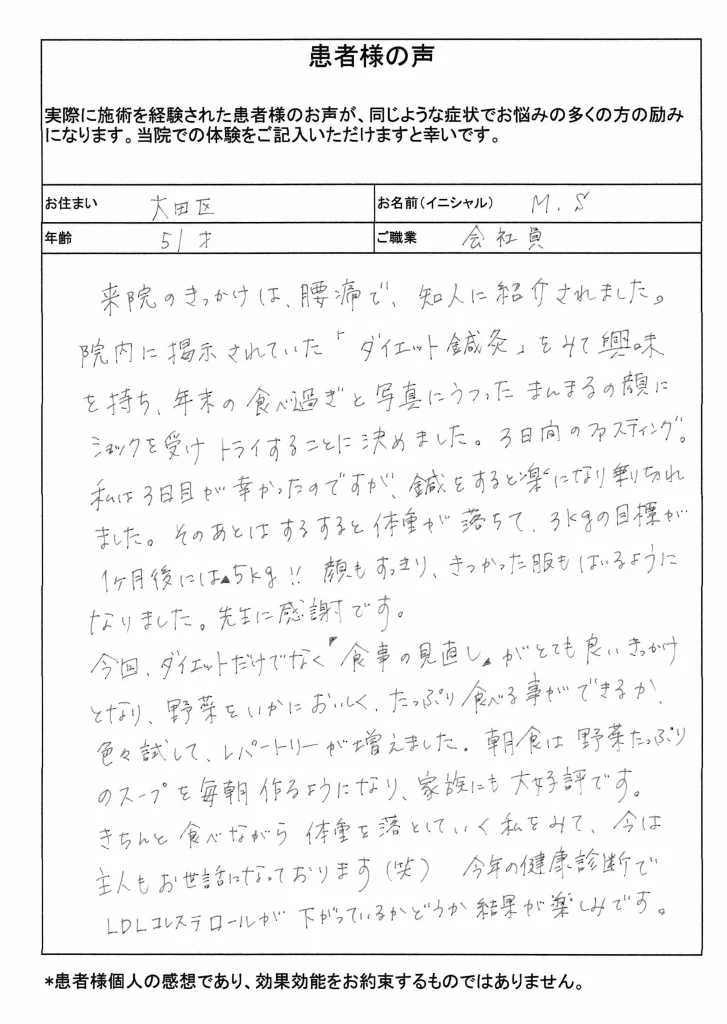 患者様の声
実際に施術を経験された患者様のお声が、同じような症状でお悩みの多くの方の励み
になります。当院での体験をご記入いただけますと幸いです。
お住まい 大田区 お名前(イニシャル) M.S
年齢 51才 ご職業 会社員
来院のきっかけは、腰痛で、知人に紹介されました。
院内に掲示されていた「ダイエット鍼灸」をみて興味
を持ち、年末の食べ過ぎと写真にうつったまんまるの顔に
ショックを受けトライすることに決めました。3日間のファスティング。
私は3日目が辛かったのですが、鍼をすると楽になり乗り切れ
ました。そのあとはするすると体重が落ちて、3kgの目標が
1ヶ月後には▲5kg!! 顔もすっきり、きつかった服もはいるように
なりました。先生に感謝です。
今回、ダイエットだけでなく『食事の見直し』がとても良いきっかけ
となり、野菜をいかにおいしく、たっぷり食べる事ができるか、
色々試して、レパートリーが増えました。朝食は野菜たっぷり
のスープを毎朝作るようになり、家族にも大好評です。
きちんと食べながら体重を落としていく私をみて、今は
主人もお世話になっております(笑) 今年の健康診断で
LDLコレステロールが下がっているかどうか結果が楽しみです。
*患者様個人の感想であり、効果効能をお約束するものではありません。